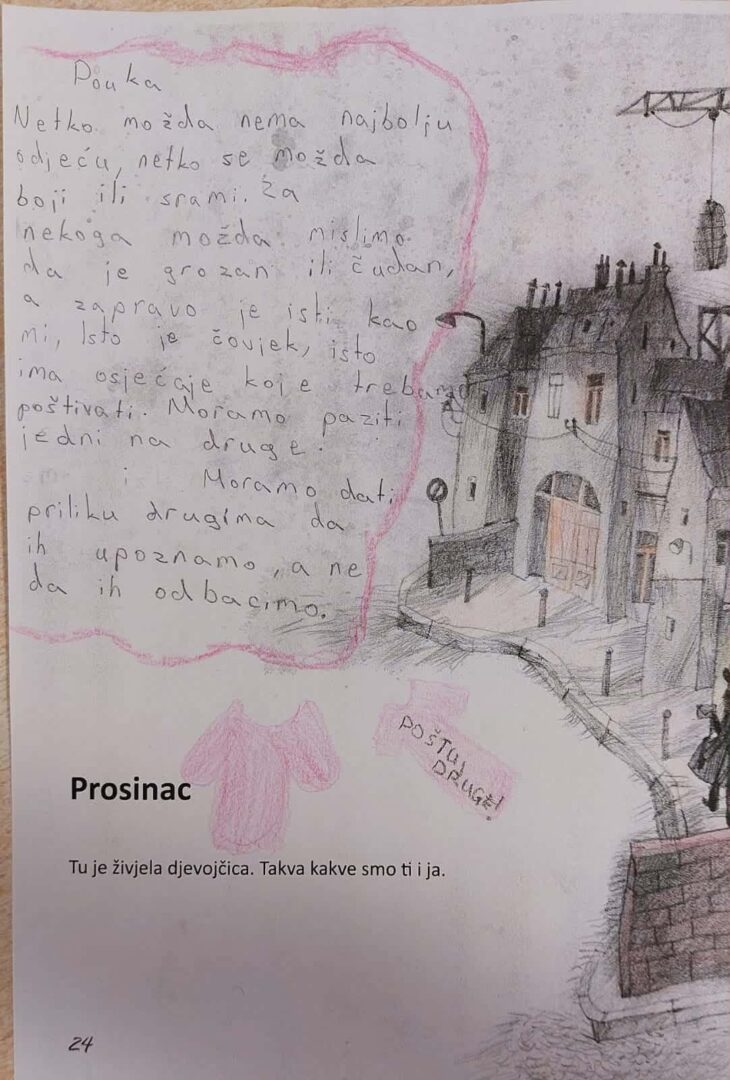 Pouka
Netko možda nema najbolju
odjeću, netko se možda
boji ili srami. Za
nekoga možda mislimo
da je grozan ili čudan,
a zapravo je isti kao
mi, Isto je čovjek, isto
ima osjećaje koje trebamo
poštivati. Moramo paziti
jedni na druge.
i Moramo dati
priliku drugima da
ih upoznamo, a ne
da ih odbacimo.
POŠTUJ
DRUGE!
Prosinac
Tu je živjela djevojčica. Takva kakve smo ti i ja.
24